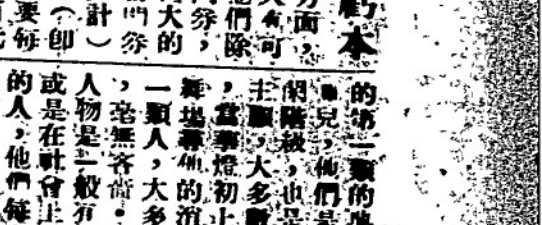 虧本
方面，
大有可
他們除
票，
大的
門票
計）
（卽
要每
的第一類的
兒，他們是
闊階級，也是
主顧，大多數
，當華燈初上
舞場尋他的消
一類人，大多
，毫無吝嗇。
人物是一般有
或是在社會上
的人，他們每